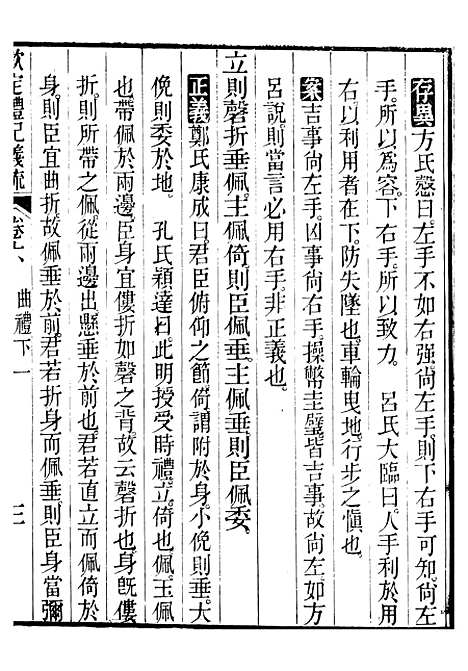 存異方氏慤曰左手不如右強尙左手則下右手可知尙左
手所以為容下右手所以致力　呂氏大臨曰人手利於用
右以利用者在下防失墜也車輪曳地行步之慎也
案吉事尙左手凶事尙右手操幣圭璧皆吉事故尙左如方
呂說則當言必用右手非正義也
立則磬折垂佩主佩倚則臣佩垂主佩垂則臣佩委
正義鄭氏康成曰君臣俯仰之節倚謂附於身小俛則垂大
俛則委於地　孔氏穎達曰此明授受時禮立倚也佩玉佩
也帶佩於兩邊臣身宜僂折如磬之背故云磬折也身旣僂
折則所帶之佩從兩邊出懸垂於前也君若直立而佩倚於
身則臣宜曲折故佩垂於前君若折身而佩垂則臣身當彌
欽定禮記義疏　卷　曲禮下一　三